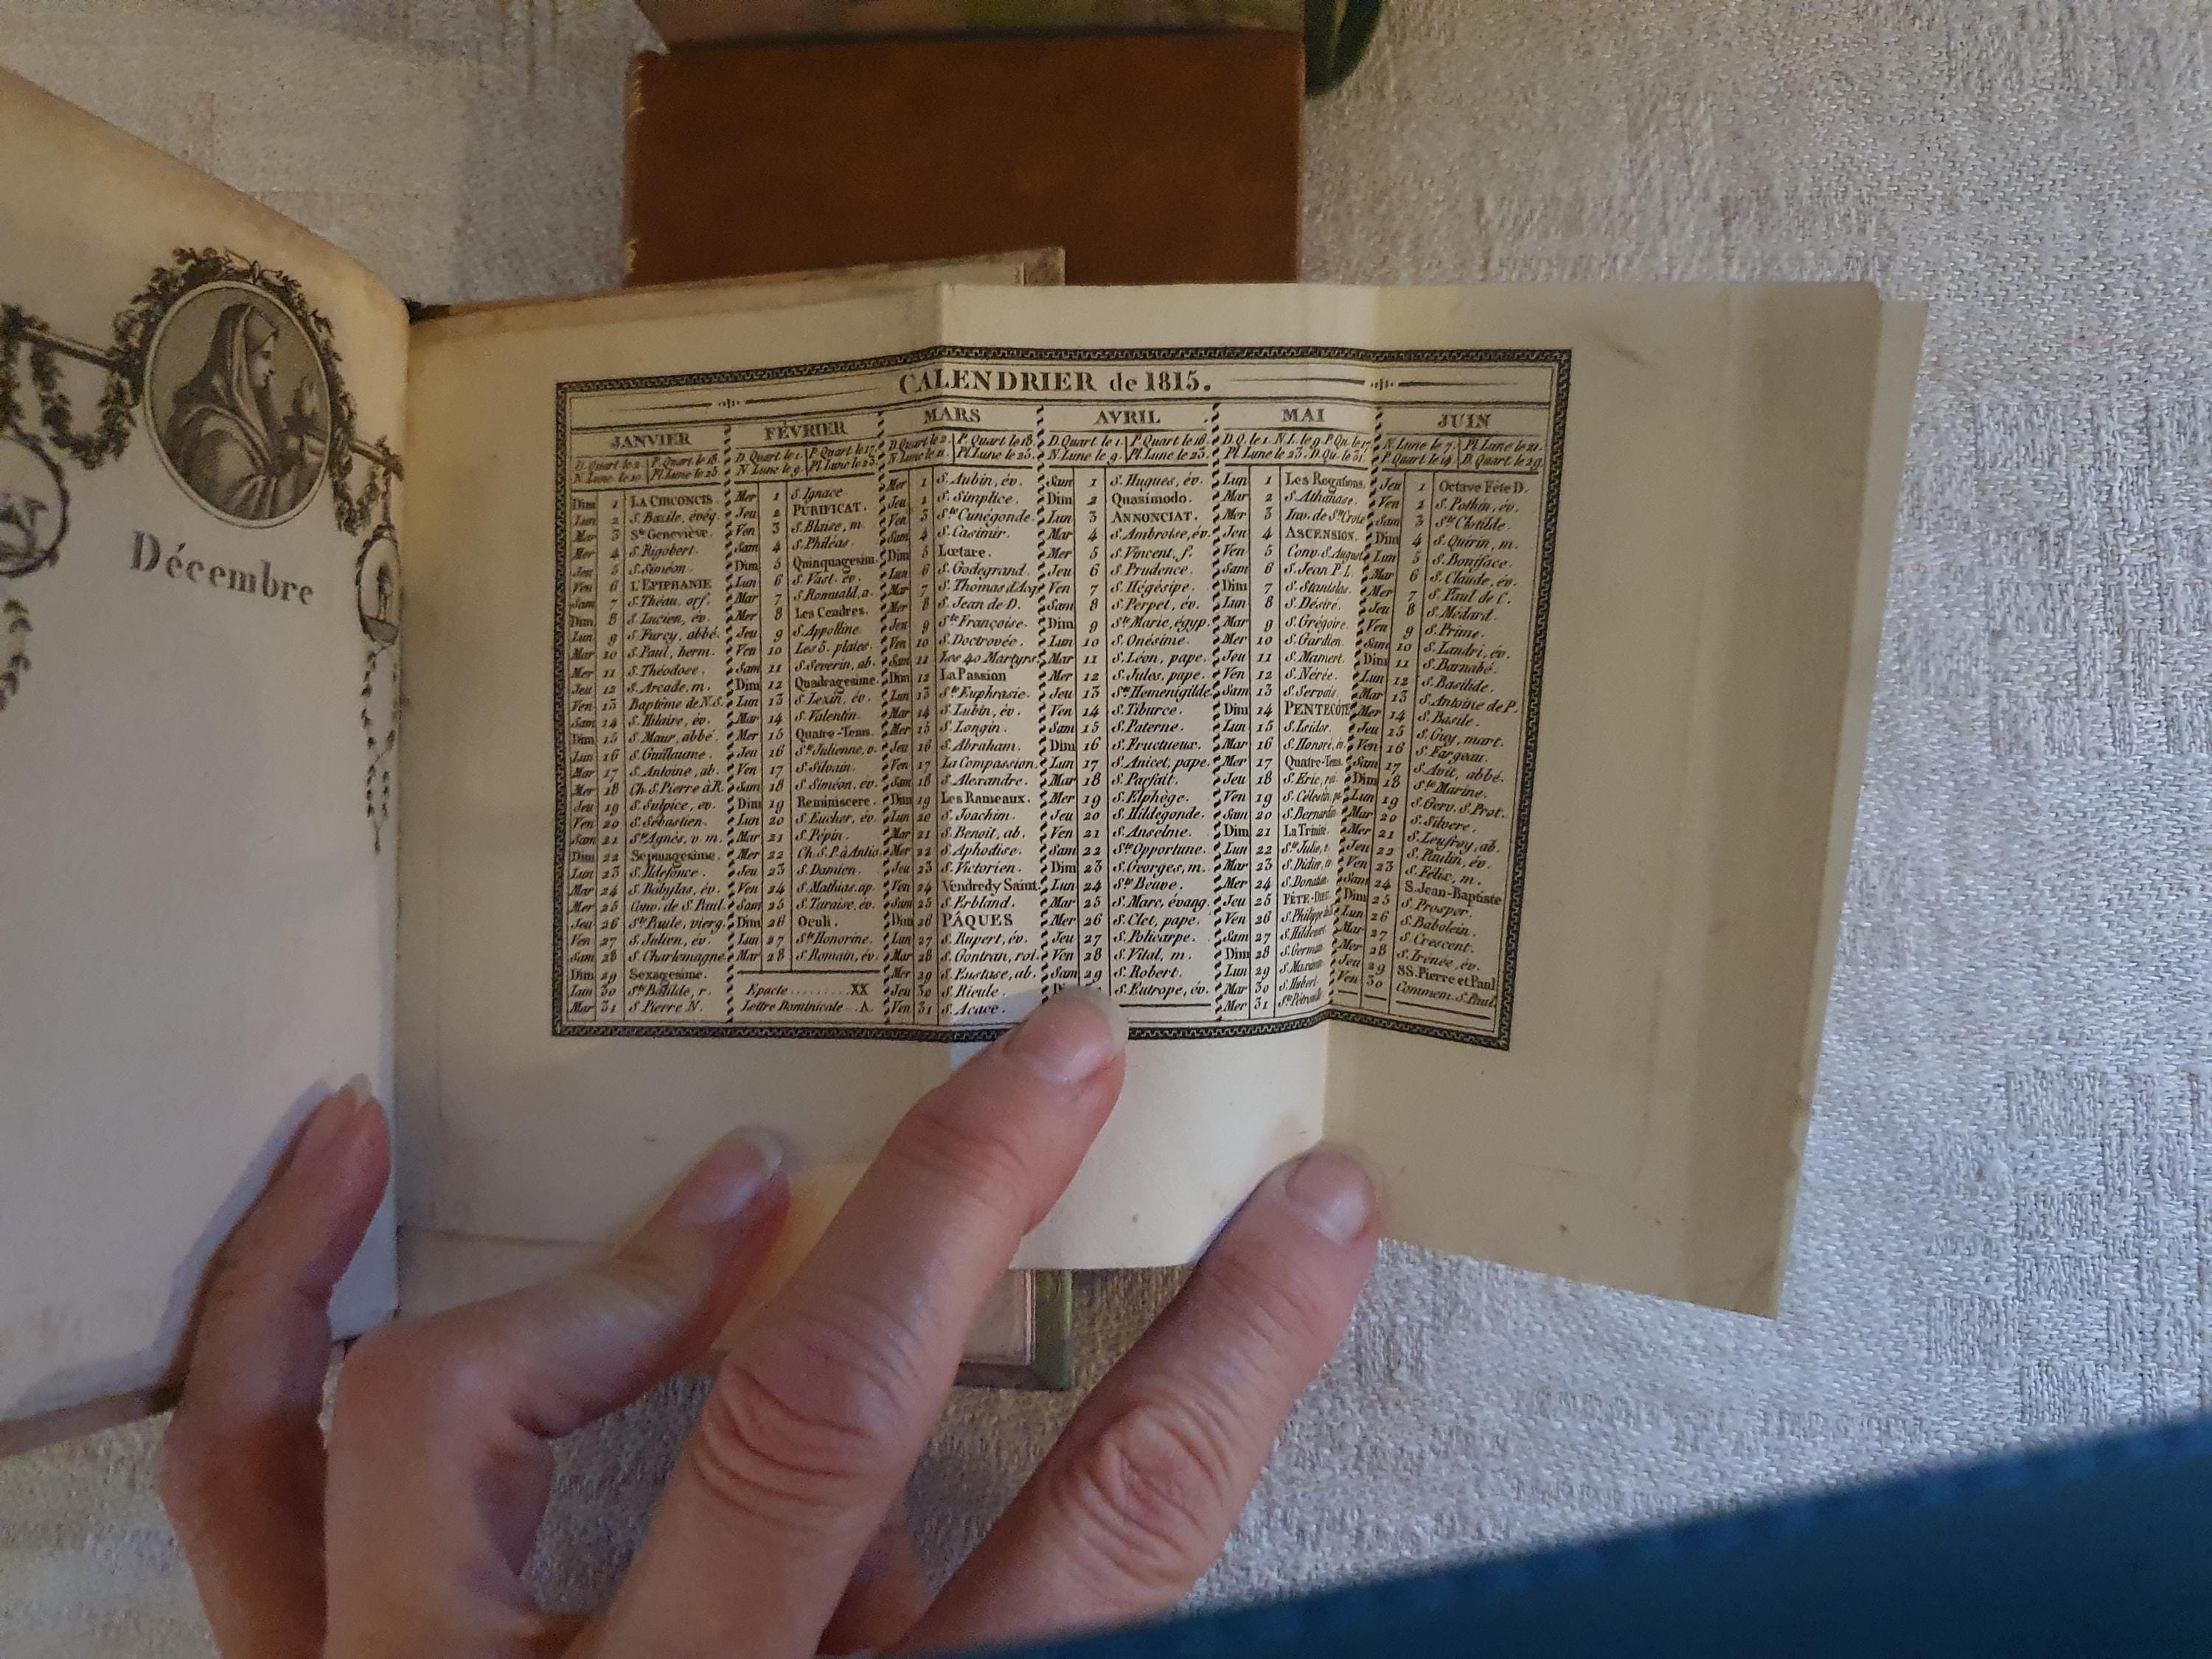 Décembre
CALENDRIER de 1815.
JANVIER
D. Quart. le 2. P. Quart. le 18.
N. Lune. le 10. Pl. Lune le 25.
Dim 1 LA CIRCONCIS.
Lun 2 S. Bazile, évêq.
Mar 3 Ste Geneviève.
Mer 4 S. Rigobert.
Jeu 5 S. Siméon.
Ven 6 L'EPIPHANIE
Sam 7 S. Théau, orf.
Dim 8 S. Lucien, év.
Lun 9 S. Furcy, abbé.
Mar 10 S. Paul, herm.
Mer 11 S. Théodose.
Jeu 12 S. Arcade, m.
Ven 13 Baptême de N.S.
Sam 14 S. Hilaire, év.
Dim 15 S. Maur, abbé.
Lun 16 S. Guillaume.
Mar 17 S. Antoine, ab.
Mer 18 Ch. S. Pierre à R.
Jeu 19 S. Sulpice, ev.
Ven 20 S. Sébastien.
Sam 21 Ste Agnès, v. m.
Dim 22 Septuagesime.
Lun 23 S. Ildefonce.
Mar 24 S. Babylas, év.
Mer 25 Conv. de S. Paul.
Jeu 26 Ste Paule, vierg.
Ven 27 S. Julien, év.
Sam 28 S. Charlemagne.
Dim 29 Sexagesime.
Lun 30 Ste Batilde, r.
Mar 31 S. Pierre N.
FÉVRIER
D. Quart le 1. P. Quart le 17.
N. Lune le 9. Pl. Lune le 23.
Mer 1 S. Ignace
Jeu 2 PURIFICAT.
Ven 3 S. Blaise, m.
Sam 4 S. Philéas.
Dim 5 Quinquagesim.
Lun 6 S. Vast. év.
Mar 7 S. Romuald, a.
Mer 8 Les Cendres.
Jeu 9 S. Appolline.
Ven 10 Les 5. plaies.
Sam 11 S. Severin, ab.
Dim 12 Quadragesime.
Lun 13 S. Lexin, év.
Mar 14 S. Valentin.
Mer 15 Quatre-Tems.
Jeu 16 Ste Julienne, v.
Ven 17 S. Silvain.
Sam 18 S. Siméon, év.
Dim 19 Reminiscere.
Lun 20 S. Eucher, év.
Mar 21 S. Pépin.
Mer 22 Ch. S. P. à Antio.
Jeu 23 S. Damien.
Ven 24 S. Mathias, ap.
Sam 25 S. Taraise, év.
Dim 26 Oculi.
Lun 27 Ste Honorine.
Mar 28 S. Romain, év.
Epacte ......... XX
Lettre Dominicale .. A
MARS
D. Quart le 2. P. Quart le 18.
N. Lune le 11. Pl. Lune le 25.
Mer 1 S. Aubin, év.
Jeu 2 S. Simplice.
Ven 3 Ste Cunégonde.
Sam 4 S. Casimir.
Dim 5 Lœtare.
Lun 6 S. Godegrand.
Mar 7 S. Thomas d'Aq.
Mer 8 S. Jean de D.
Jeu 9 Ste Françoise.
Ven 10 S. Doctrovée.
Sam 11 Les 40 Martyrs.
Dim 12 La Passion
Lun 13 Ste Euphrasie.
Mar 14 S. Lubin, év.
Mer 15 S. Longin.
Jeu 16 S. Abraham.
Ven 17 La Compassion.
Sam 18 S. Alexandre.
Dim 19 Les Rameaux.
Lun 20 S. Joachim.
Mar 21 S. Benoit, ab.
Mer 22 S. Aphodise.
Jeu 23 S. Victorien.
Ven 24 Vendredy Saint.
Sam 25 S. Erbland.
Dim 26 PÂQUES
Lun 27 S. Rupert, év.
Mar 28 S. Gontran, roi.
Mer 29 S. Eustase, ab.
Jeu 30 S. Rieule.
Ven 31 S. Acace.
AVRIL
D. Quart le 1. P. Quart le 18.
N. Lune le 9. Pl. Lune le 23.
Sam 1 S. Hugues, év.
Dim 2 Quasimodo.
Lun 3 ANNONCIAT.
Mar 4 S. Ambroise, év.
Mer 5 S. Vincent, f.
Jeu 6 S. Prudence.
Ven 7 S. Hégésipe.
Sam 8 S. Perpet, év.
Dim 9 Ste Marie, égyp.
Lun 10 S. Onésime.
Mar 11 S. Léon, pape.
Mer 12 S. Jules, pape.
Jeu 13 Ste Hemenigilde.
Ven 14 S. Tiburce.
Sam 15 S. Paterne.
Dim 16 S. Fructueux.
Lun 17 S. Anicet, pape.
Mar 18 S. Parfait.
Mer 19 S. Elphège.
Jeu 20 S. Hildegonde.
Ven 21 S. Anselme.
Sam 22 Ste Opportune.
Dim 23 S. Georges, m.
Lun 24 Ste Beuve.
Mar 25 S. Marc, évang.
Mer 26 S. Clet, pape.
Jeu 27 S. Policarpe.
Ven 28 S. Vital, m.
Sam 29 S. Robert.
S. Eutrope, év.
MAI
D. Q. le 1. N. L. le 9. P. Qu. le 17.
Pl. Lune le 23. D. Qu. le 31.
Lun 1 Les Rogations.
Mar 2 S. Athanase.
Mer 3 Inv. de Ste Croix
Jeu 4 ASCENSION.
Ven 5 Conv. S. August.
Sam 6 S. Jean P. L.
Dim 7 S. Stanislas.
Lun 8 S. Désiré.
Mar 9 S. Grégoire.
Mer 10 S. Gordien.
Jeu 11 S. Mamert.
Ven 12 S. Nérée.
Sam 13 S. Servais.
Dim 14 PENTECÔTE
Lun 15 S. Isidor.
Mar 16 S. Honoré, év.
Mer 17 Quatre-Tems.
Jeu 18 S. Eric, roi
Ven 19 S. Célestin, pa.
Sam 20 S. Bernardin
Dim 21 La Trinité.
Lun 22 Ste Julie, v.
Mar 23 S. Didier, év
Mer 24 S. Donatien
Jeu 25 FÊTE-DIEU.
Ven 26 S. Philippe de N.
Sam 27 S. Hildevert.
Dim 28 S. Germain
Lun 29 S. Maximin
Mar 30 S. Hubert
Mer 31 Ste Pétronille
JUIN
N. Lune le 7. Pl. Lune le 21.
P. Quart le 14. D. Quart. le 29.
Jeu 1 Octave Fête D.
Ven 2 S. Pothin, év.
Sam 3 Ste Clotilde.
Dim 4 S. Quirin, m.
Lun 5 S. Boniface.
Mar 6 S. Claude, év.
Mer 7 S. Paul de C.
Jeu 8 S. Médard.
Ven 9 S. Prime.
Sam 10 S. Landri, év.
Dim 11 S. Barnabé.
Lun 12 S. Basilide.
Mar 13 S. Antoine de P.
Mer 14 S. Basile.
Jeu 15 S. Guy, mart.
Ven 16 S. Fargeau.
Sam 17 S. Avit, abbé.
Dim 18 Ste Marine.
Lun 19 S. Gerv. S. Prot.
Mar 20 S. Silvere.
Mer 21 S. Leufroy, ab.
Jeu 22 S. Paulin, év.
Ven 23 S. Félix, m.
Sam 24 S. Jean-Baptiste
Dim 25 S. Prosper.
Lun 26 S. Babolein.
Mar 27 S. Crescent.
Mer 28 S. Irénée, év.
Jeu 29 SS. Pierre et Paul
Ven 30 Commem. S. Paul.